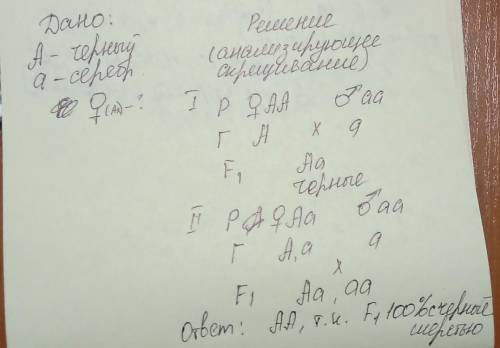 Дано:
А - черный
а - серебр
♀(АА) - ?
Решение
(анализирующее
скрещивание)
I P ♀АА ♂аа
Г А х а
F₁ Аа
черные
II P ♀Аа ♂аа
Г А, а а
х
F₁ Аа, аа
Ответ: АА, т.к. F₁ 100% с черной
шерстью